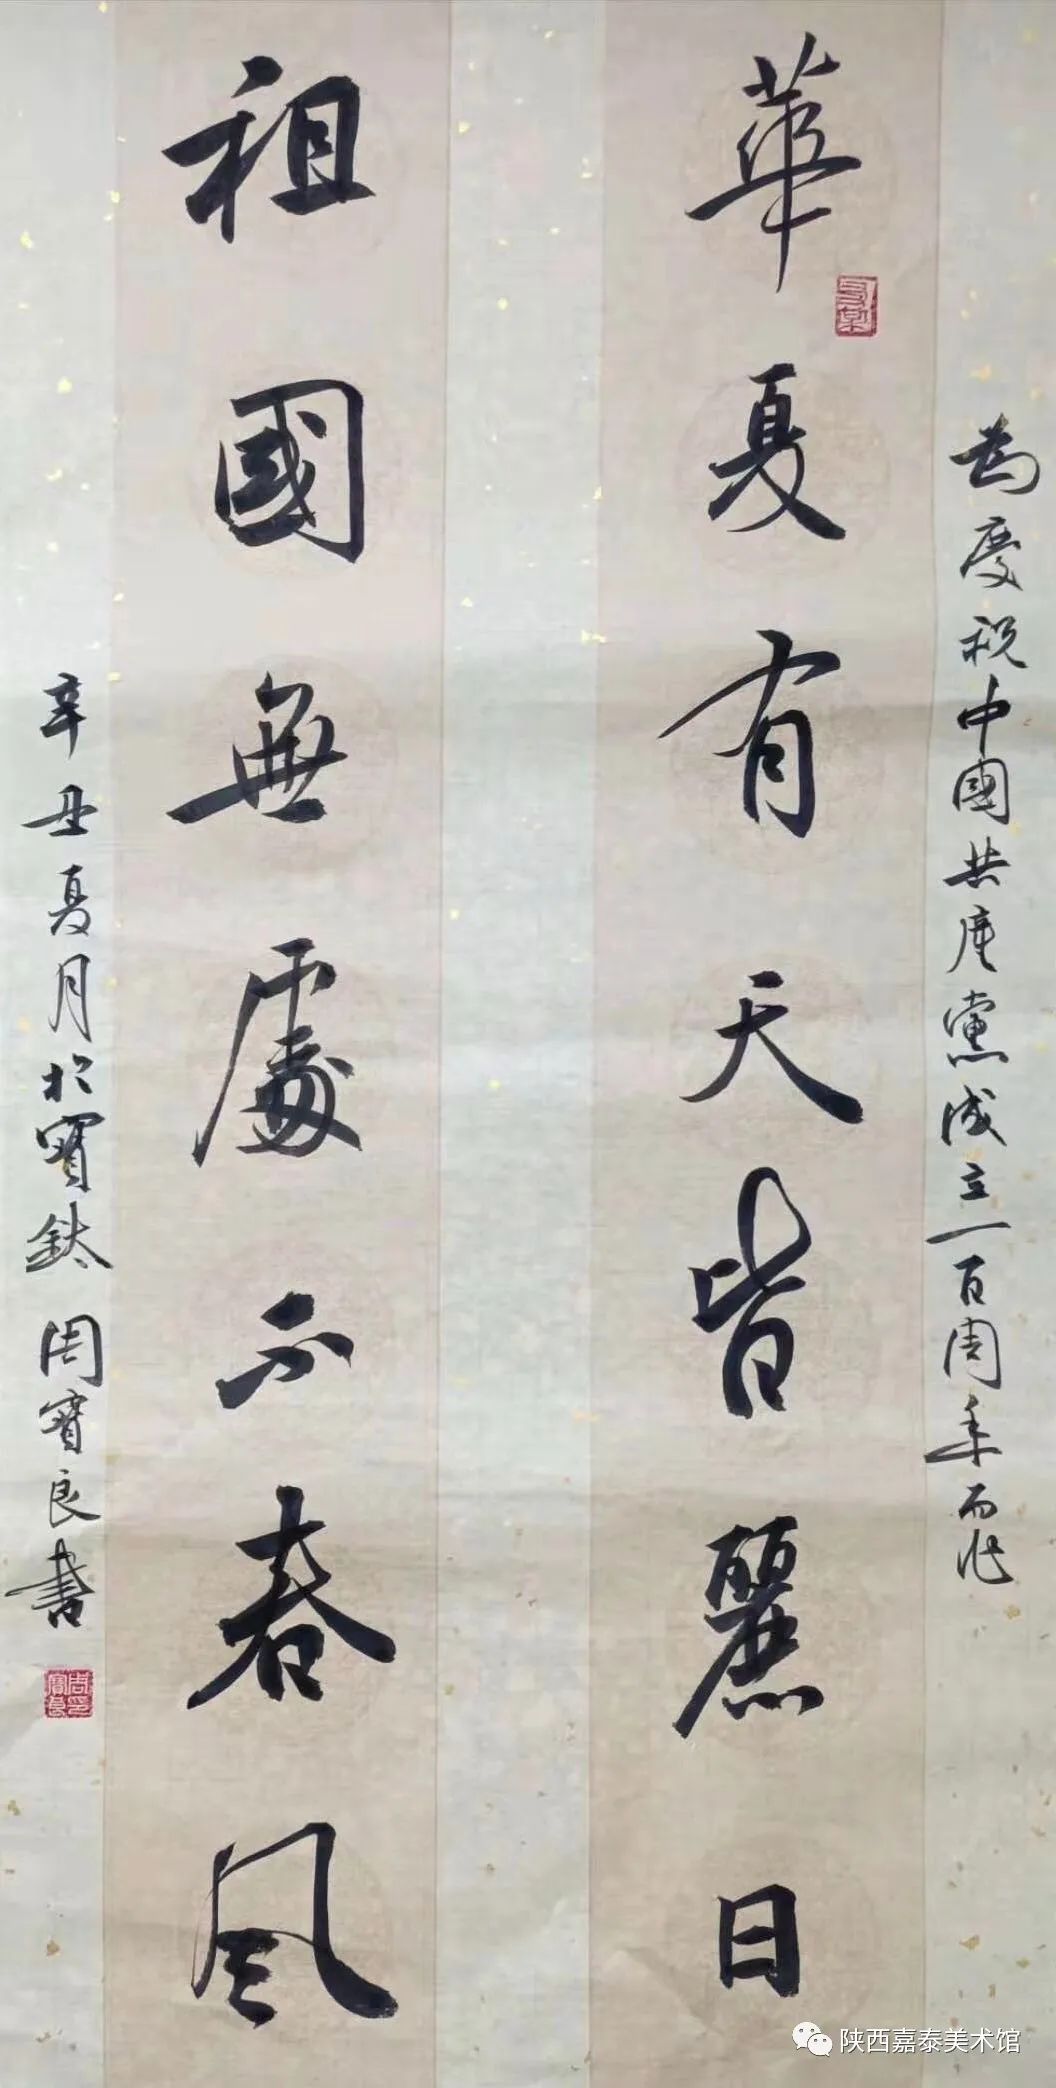 為慶祝中國共產黨成立一百周年而作
華夏有天皆麗日
祖國無處不春風
辛丑夏月於寶鈦 周寶良書
周寶良印
陕西嘉泰美术馆